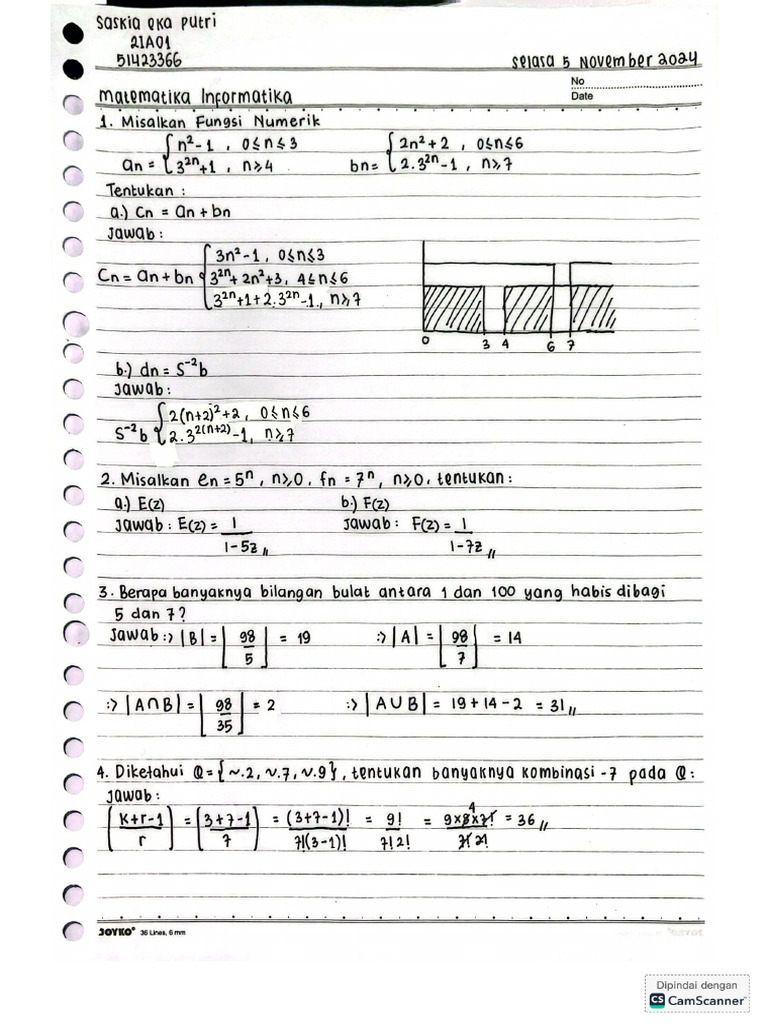 Saskia eka putri
2IA01
51423366
Selasa 5 November 2024
No
Date
Matematika Informatika
1. Misalkan Fungsi Numerik
an = { n²-1 , 0≤n≤3
3²ⁿ+1 , n≥4
bn = { 2n²+2 , 0≤n≤6
2.3²ⁿ-1 , n≥7
Tentukan :
a.) Cn = an + bn
Jawab :
Cn = an + bn { 3n²-1 , 0≤n≤3
3²ⁿ+2n²+3, 4≤n≤6
3²ⁿ+1+2.3²ⁿ-1., n≥7
0 3 4 6 7
b.) dn = S⁻²b
Jawab :
S⁻²b { 2(n+2)²+2 , 0≤n≤6
2.3²⁽ⁿ⁺²⁾-1, n≥7
2. Misalkan en = 5ⁿ , n≥0 , fn = 7ⁿ , n≥0. tentukan :
a.) E(z) b.) F(z)
Jawab : E(z) = 1/(1-5z) // Jawab : F(z) = 1/(1-7z) //
3. Berapa banyaknya bilangan bulat antara 1 dan 100 yang habis dibagi
5 dan 7?
Jawab :> |B| = ⌊98/5⌋ = 19 :> |A| = ⌊98/7⌋ = 14
:> |A∩B| = ⌊98/35⌋ = 2 :> |A∪B| = 19+14-2 = 31 //
4. Diketahui Q = {~.2, ~.7, ~.9} , tentukan banyaknya kombinasi -7 pada Q :
Jawab :
[(K+r-1)/r] = [(3+7-1)/7] = (3+7-1)!/7!(3-1)! = 9!/7!2! = 9×8×7!/7!2! 4 = 36 //
JOYKO® 36 Lines, 6 mm
Dipindai dengan
CS CamScanner